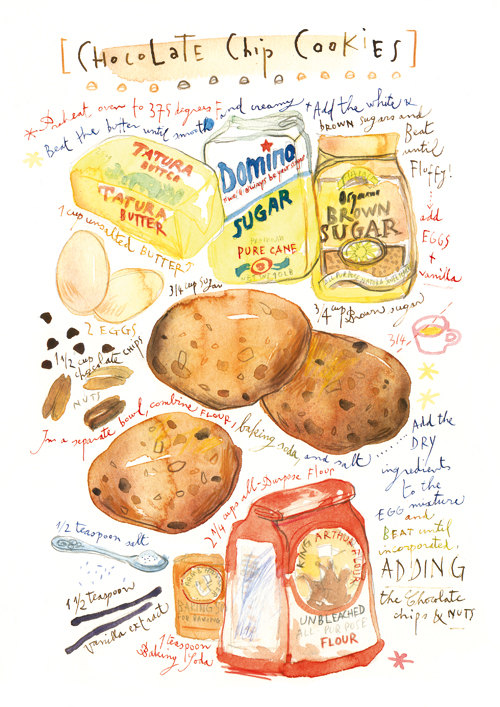 [CHOCOLATE CHIP COOKIES]
* Preheat oven to 375 degrees F
Beat the butter until smooth and creamy + Add the white &
BROWN sugars and
Beat
until
Fluffy!
add
EGGS
+
vanilla
TATURA
BUTTER
TATURA
BUTTER
1 cup unsalted BUTTER
Domino
SUGAR
PURE CANE
3/4 cup sugar
Organic
BROWN
SUGAR
3/4 cup Brown sugar
2 EGGS
3/4
1 1/2 cup
chocolate CHIPS
NUTS
In a separate bowl, combine FLOUR, baking soda, and salt ........ Add the
DRY
ingredients
to the
EGG mixture
and
BEAT until
incorporated.
ADDING
the Chocolate
chips & NUTS
2 1/4 cups all-Purpose Flour
1/2 teaspoon salt
KING ARTHUR FLOUR
UNBLEACHED
ALL PURPOSE
FLOUR
1 1/2 teaspoon
vanilla extract
BAKING
1 teaspoon
Baking Soda
*